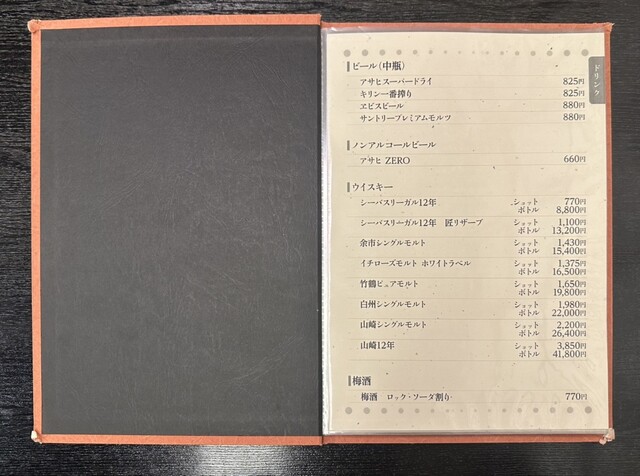 ドリンク
ビール（中瓶）
アサヒスーパードライ 825円
キリン一番搾り 825円
ヱビスビール 880円
サントリープレミアムモルツ 880円
ノンアルコールビール
アサヒ ZERO 660円
ウイスキー
シーバスリーガル12年 ショット 770円
ボトル 8,800円
シーバスリーガル12年 匠リザーブ ショット 1,100円
ボトル 13,200円
余市シングルモルト ショット 1,430円
ボトル 15,400円
イチローズモルト ホワイトラベル ショット 1,375円
ボトル 16,500円
竹鶴ピュアモルト ショット 1,650円
ボトル 19,800円
白州シングルモルト ショット 1,980円
ボトル 22,000円
山崎シングルモルト ショット 2,200円
ボトル 26,400円
山崎12年 ショット 3,850円
ボトル 41,800円
梅酒
梅酒 ロック・ソーダ割り 770円